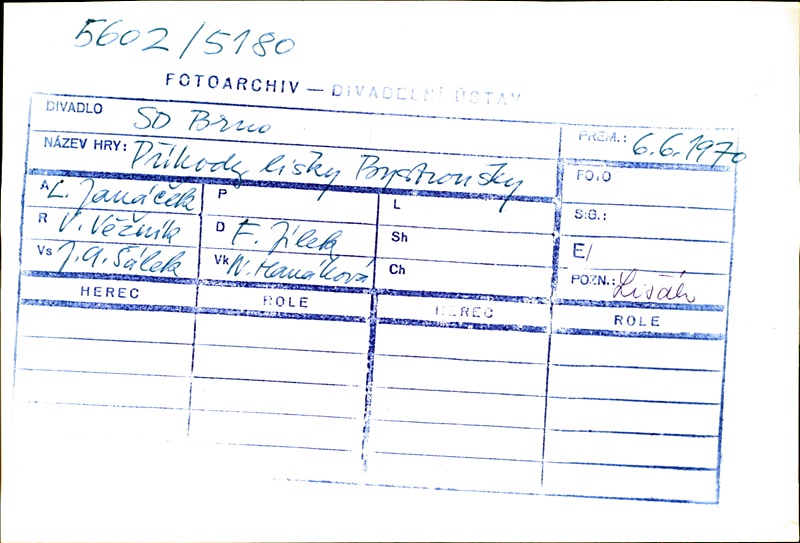 5602/5180
FOTOARCHIV — DIVADELNÍ ÚSTAV
DIVADLO SD Brno
PREM.: 6.6.1970
NÁZEV HRY: Příhody lišky Bystroušky
FOTO
A L. Janáček
P
L
SIG.:
R V. Věžník
D F. Jílek
Sh
E/
Vs J.A. Šálek
Vk N. Hanáková
Ch
POZN.: Lišák
HEREC
ROLE
HEREC
ROLE